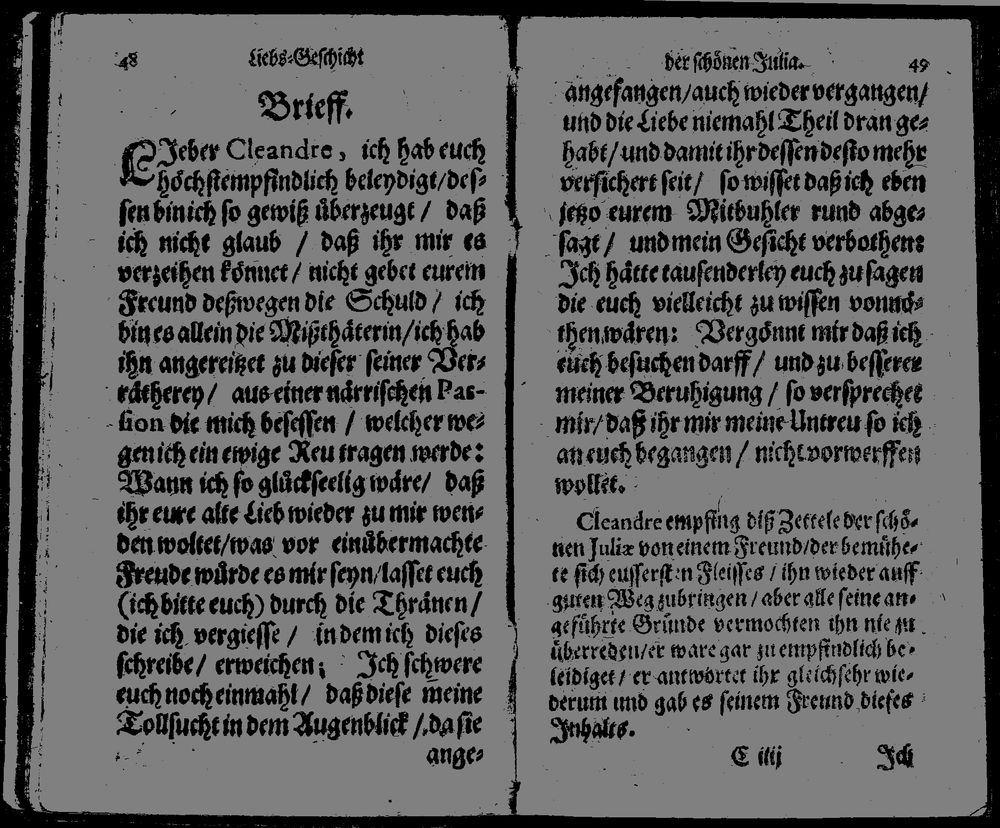 48 Liebs-Geschicht
Brieff.
LIeber Cleandre, ich hab euch
höchstempfindlich beleydigt/des-
sen bin ich so gewiß überzeugt / daß
ich nicht glaub / daß ihr mir es
verzeihen könnet / nicht gebet eurem
Freund deßwegen die Schuld / ich
bin es allein die Mißthäterin/ich hab
ihn angereitzet zu dieser seiner Ver-
rätherey / aus einer närrischen Pas-
sion die mich besessen / welcher we-
gen ich ein ewige Reu tragen werde:
Wann ich so glückseelig wäre/ daß
ihr eure alte Lieb wieder zu mir wen-
den woltet/was vor ein übermachte
Freude würde es mir seyn/lasset euch
(ich bitte euch) durch die Thränen /
die ich vergiesse / indem ich dieses
schreibe / erweichen; Ich schwere
euch noch einmahl / daß diese meine
Tollsucht in dem Augenblick / da sie
ange-
der schönen Julia. 49
angefangen/auch wieder vergangen/
und die Liebe niemahl Theil dran ge-
habt/ und damit ihr dessen desto mehr
versichert seit/ so wisset daß ich eben
jetzo eurem Mitbuhler rund abge-
sagt / und mein Gesicht verbothen:
Ich hätte tausenderley euch zu sagen
die euch vielleicht zu wissen vonnö-
then wären: Vergönnt mir daß ich
euch besuchen darff / und zu besserer
meiner Beruhigung / so versprechet
mir/ daß ihr mir meine Untreu so ich
an euch begangen / nicht vorwerffen
wollet.
Cleandre empfing diß Zettele der schö-
nen Juliæ von einem Freund/der bemühe-
te sich eussersten Fleisses / ihn wieder auff
guten Weg zubringen / aber alle seine an-
geführte Gründe vermochten ihn nie zu
überreden/er ware gar zu empfindlich be-
leidiget / er antwortet ihr gleichsehr wie-
derum und gab es seinem Freund dieses
Inhalts.
C iiij Ich